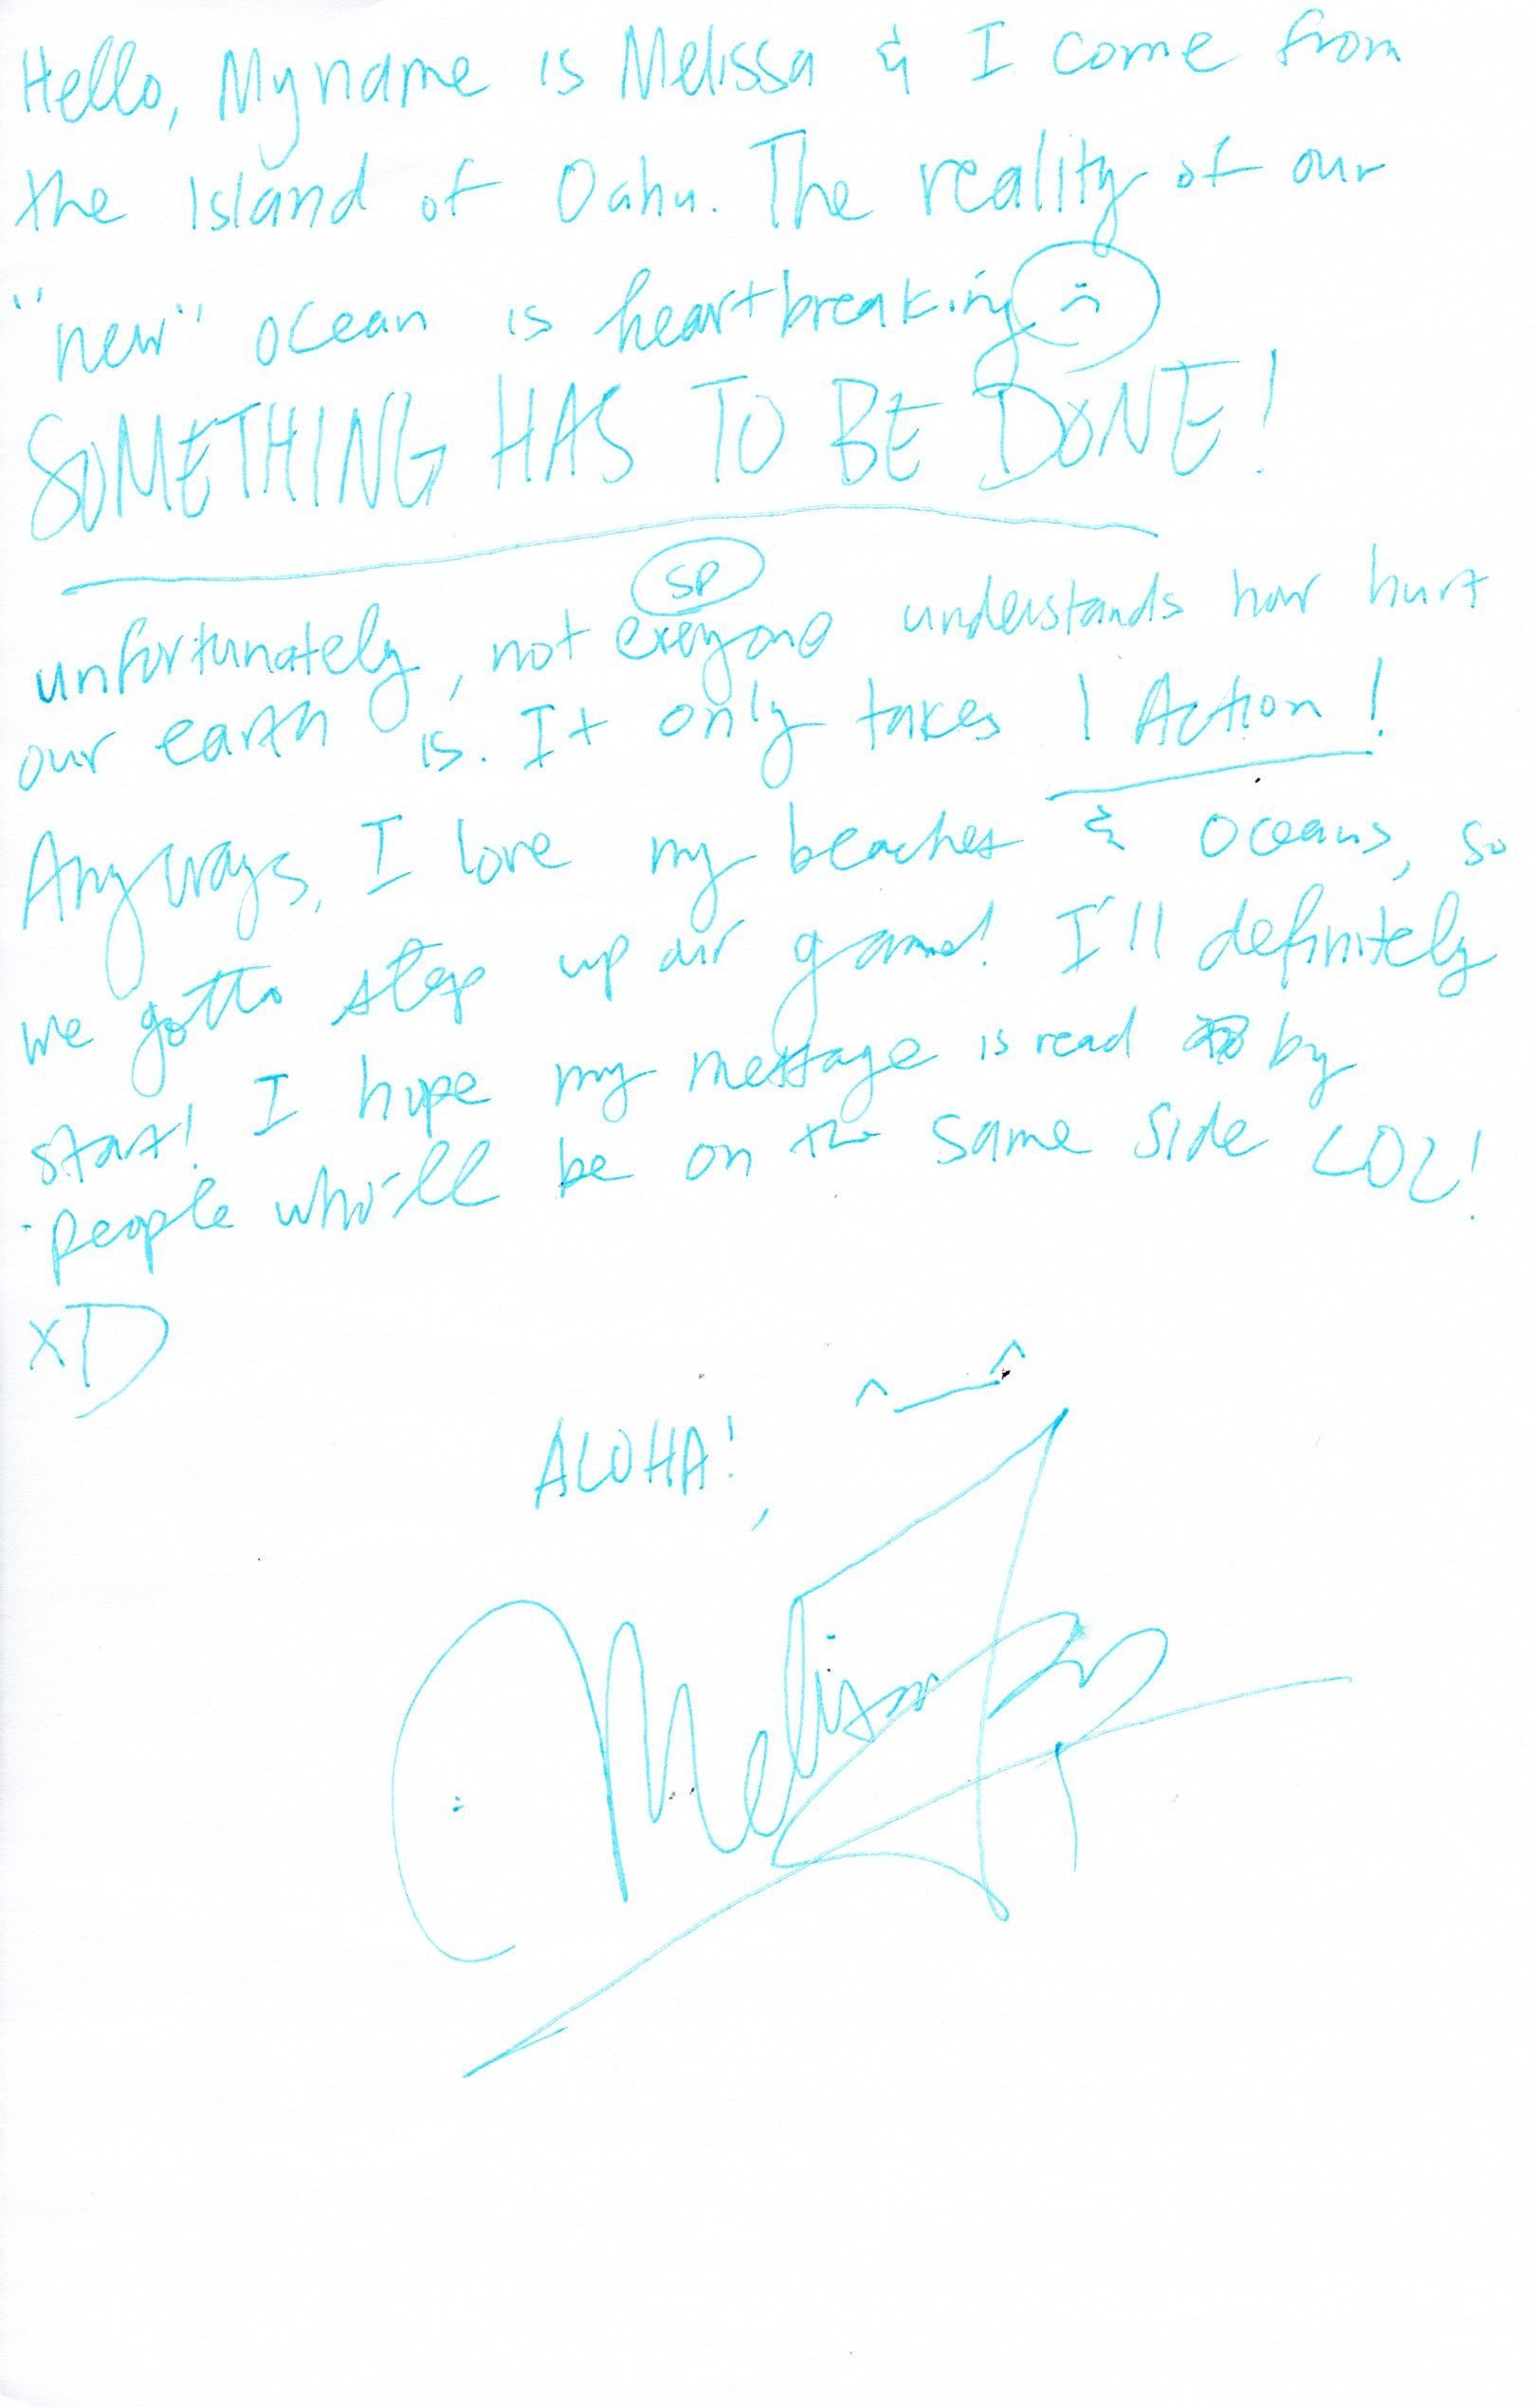 Hello, My name is Melissa & I come from
the Island of Oahu. The reality of our
"new" ocean is heartbreaking
SOMETHING HAS TO BE DONE!
SP
unfortunately, not exeyone understands how hurt
our earth is. It only takes 1 Action!
Anyways, I love my beaches & oceans, so
we gotta step up our game! I'll definitely
start! I hope my message is read by
people who'll be on the same side LOL!
xD
^_^
ALOHA!,
Melissa